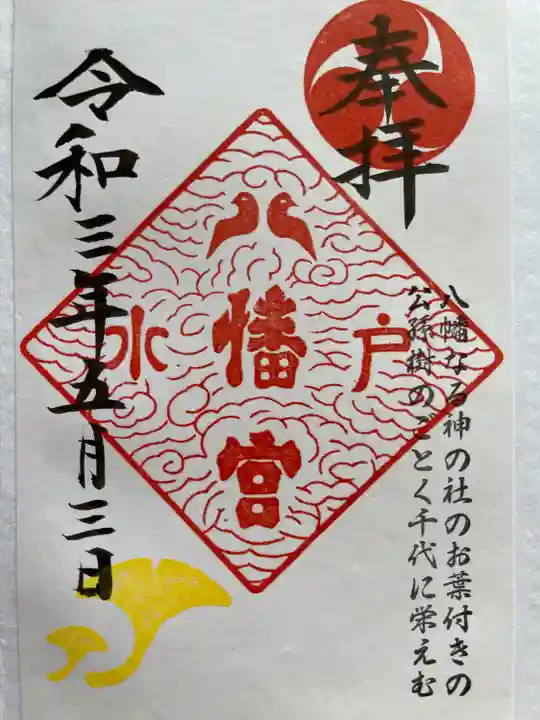 奉拝
八幡なる神の社のお葉付きの
公孫樹のごとく千代に栄えむ
水戸
八幡宮
令和三年五月三日